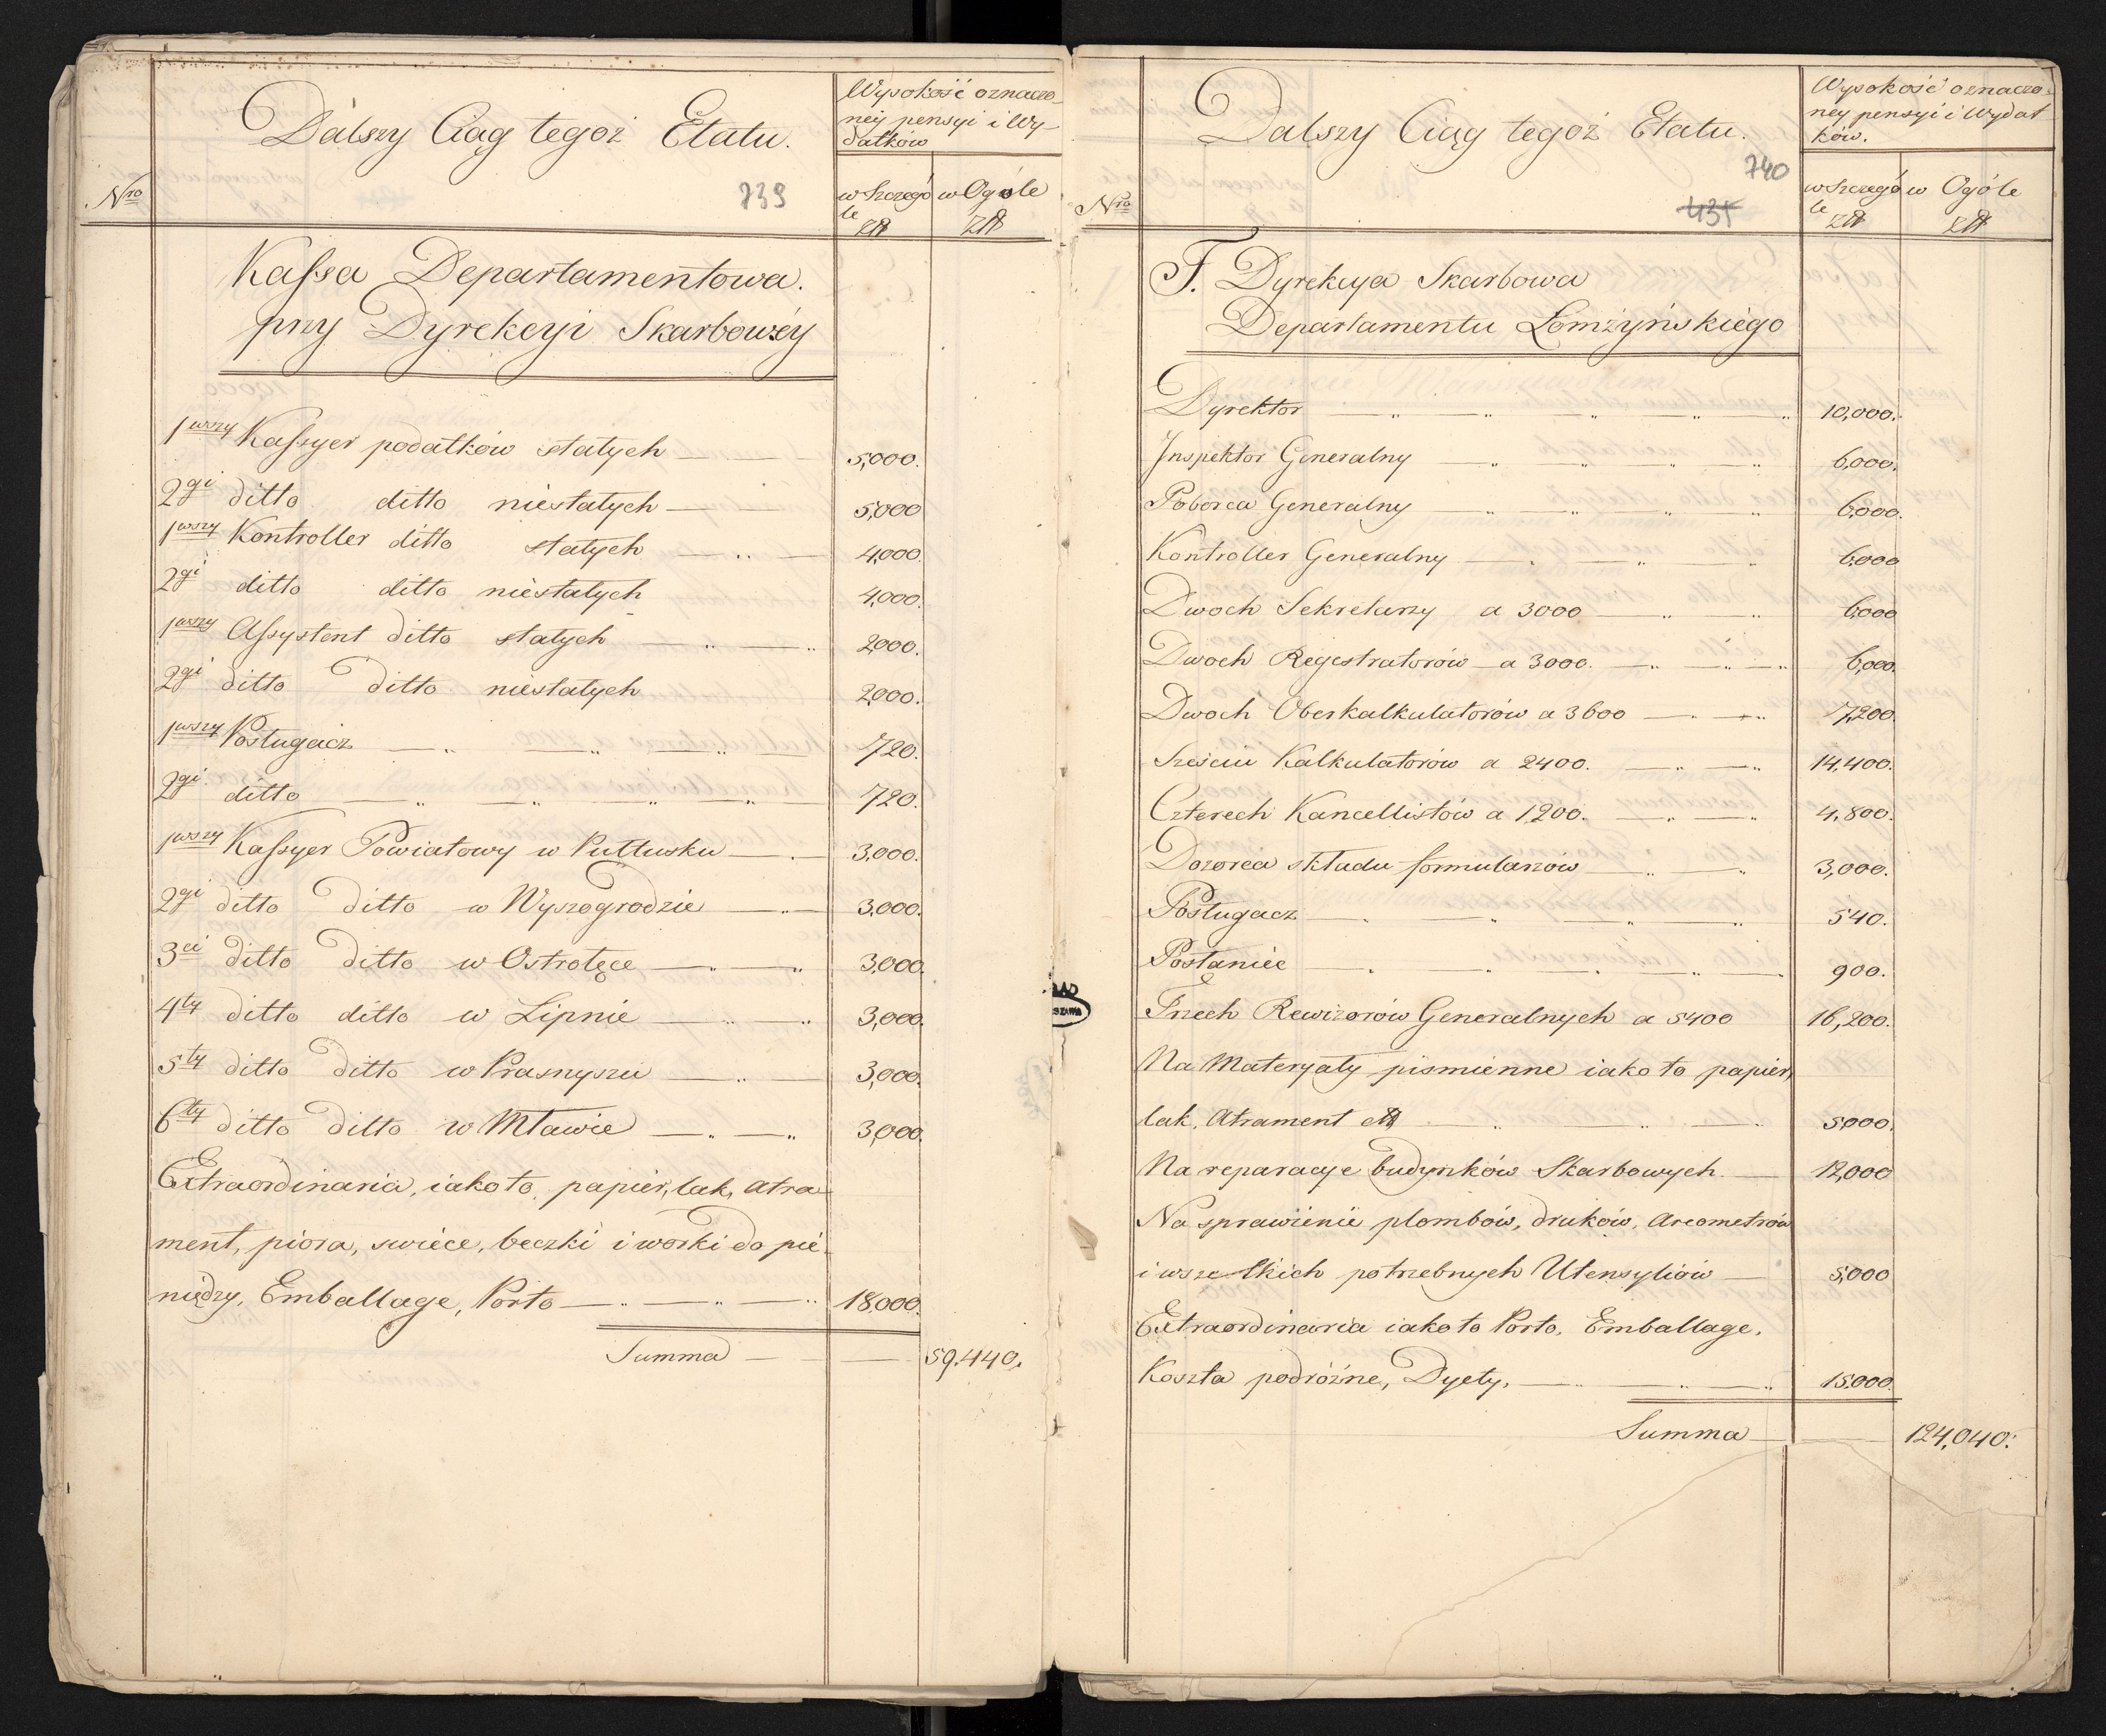 Dalszy Ciąg tegoż Etatu.
739
Nro
Wysokość oznaczo-
ney pensyi i Wy-
datków
w Szczegó w Ogóle
le
Kaſsa Departamentowa.
przy Dyrekcyi Skarbowéy
1wszy Kaſsyer podatków stałych 5,000.
2gi ditto ditto niestałych 5,000
1wszy Kontroller ditto stałych 4,000.
2gi ditto ditto niestałych 4,000.
1wszy Aſsystent ditto stałych 2,000.
2gi ditto ditto niestałych 2,000.
1wszy Posługacz 720.
2gi ditto 720.
1wszy Kaſsyer Powiatowy w Pułtusku 3,000.
2gi ditto ditto w Wyszogrodzie 3,000.
3ci ditto ditto w Ostrołęce 3,000.
4ty ditto ditto w Lipnie 3,000.
5ty ditto ditto w Prasnyszu 3,000.
6ty ditto ditto w Mławie 3,000.
Extraordinaria, iako to, papier, lak, atra-
ment, piora, swiece, beczki i worki do pie-
niędzy, Emballage, Porto 18,000.
Summa 59.440.
Dalszy Ciąg tegoż Etatu.
740
435
Nro
Wysokość oznaczo-
ney pensyi i Wydat
ków.
w Szczegó w Ogóle
le
F. Dyrekcya Skarbowa
Departamentu Łomżyńskiégo
Dyrektor 10,000.
Inspektor Generalny 6,000.
Poborca Generalny 6,000.
Kontroller Generalny 6,000
Dwoch Sekretarzy a 3000 6,000
Dwoch Regestratorów a 3000. 6,000.
Dwoch Oberkalkulatorów a 3600 7,200.
Sześciu Kalkulatorów a 2400. 14,400.
Czterech Kancellistów a 1,200. 4,800.
Dozorca składu formularzów 3,000.
Posługacz 540.
Posłaniec 900.
Trzech Rewizorów Generalnych a 5400 16,200.
Na Materyały pismienne iako to papier,
lak, Atrament etc 5,000.
Na reparacye budynków Skarbowych. 12,000
Na sprawienie plombów, druków, Areometrów
i wszelkich potrzebnych Utensyliów 5,000
Extraordinaria iako to Porto, Emballage,
Koszta podróżne, Dyety, 15,000.
Summa 124,040.